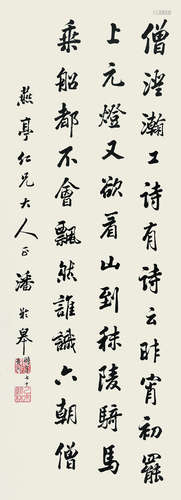 僧澄瀚工詩有詩云昨宵初罷
上元燈又欲看山到秣陵騎馬
乘船都不會飄然誰識六朝僧
燕亭仁兄大人正 潘齡皋
七十